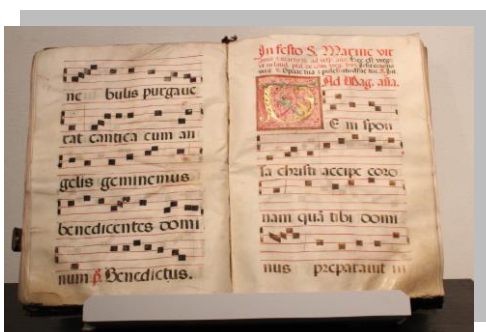 ne bulis purgauc
tat cantica cum an
gelis geminemus
benedicentes domi
num p. Benedictus.
In festo S. Marine vir
Ad Mag. aña.
E ni spon
sa christi accipe coro
nam quā tibi domi
nus preparauit in